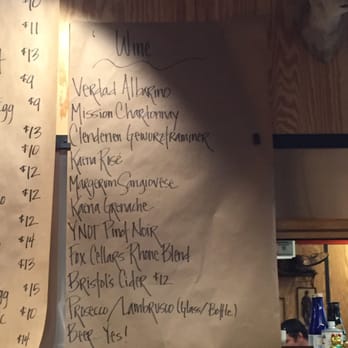 10
$11
$13
$9
$9
$13
$10
$12
$12
$12
$14
$13
$15
$10
$14
Wine
Verdad Albarino
Mission Chardonnay
Clendenen Gewurztraminer
Kaena Rosé
Margerum Sangiovese
Kaena Grenache
YNOT Pinot Noir
Fox Cellars Rhone Blend
Bristols Cider $12
Prosecco/Lambrusco (Glass/Bottle)
Beer... Yes!